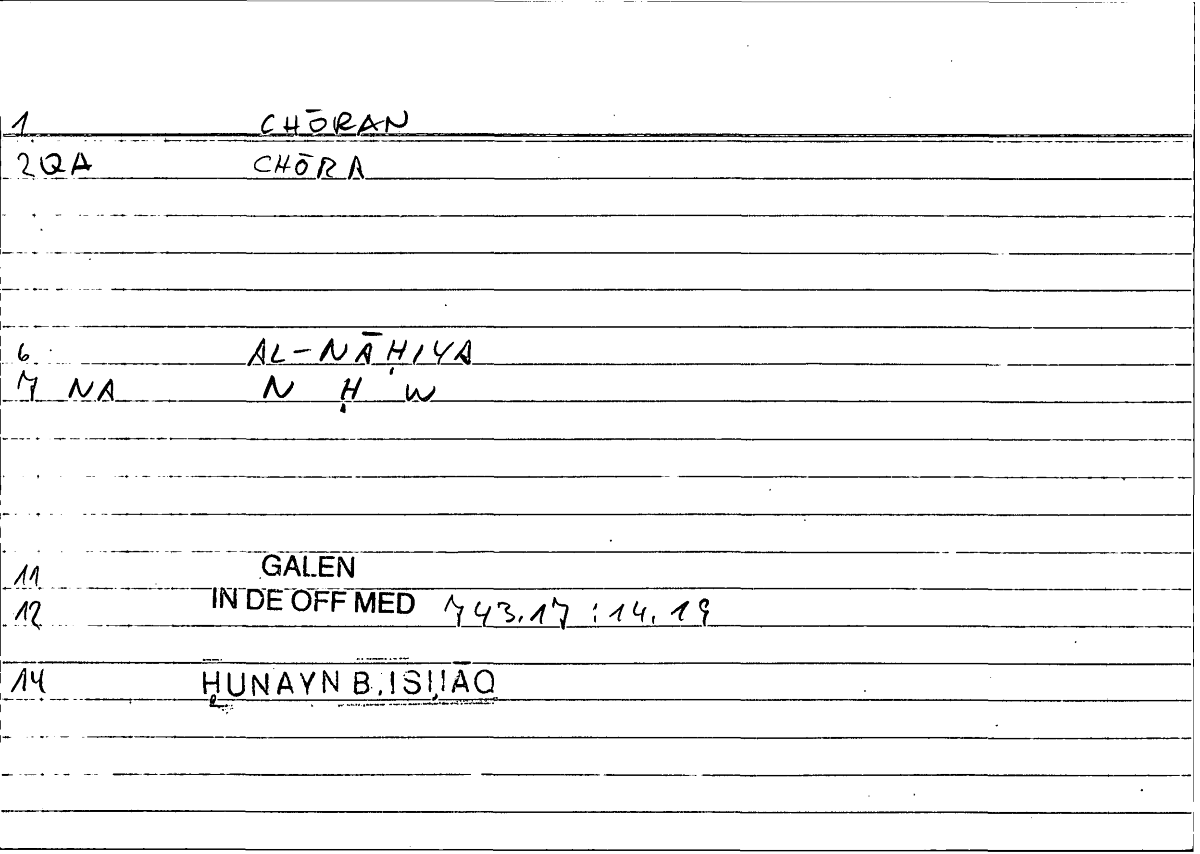 1 CHŌRAN
2QA CHŌRA
6 AL-NĀḤIYA
7 NA N Ḥ W
11 GALEN
12 IN DE OFF MED 743.17 : 14.19
14 ḤUNAYN B. ISḤĀQ